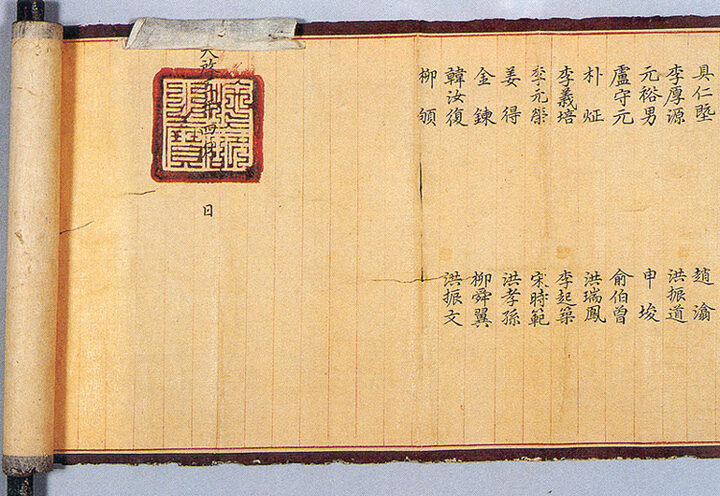 具仁墍 趙潝
李厚源 洪振道
元裕男 申埈
盧守元 俞伯曾
朴炡 洪瑞鳳
李義培 李起築
李元榮 宋時範
姜得 洪孝孫
金鍊 柳舜翼
韓汝復 洪振文
柳
天啓 年四月 日